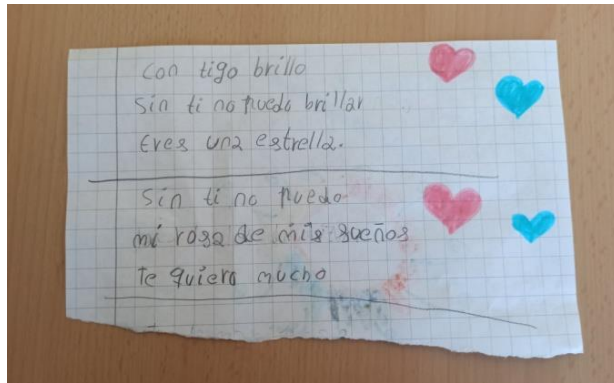 Con tigo brillo
Sin ti no puedo brillar
Eres una estrella.
Sin ti no puedo
mi rosa de mis sueños
te quiero mucho